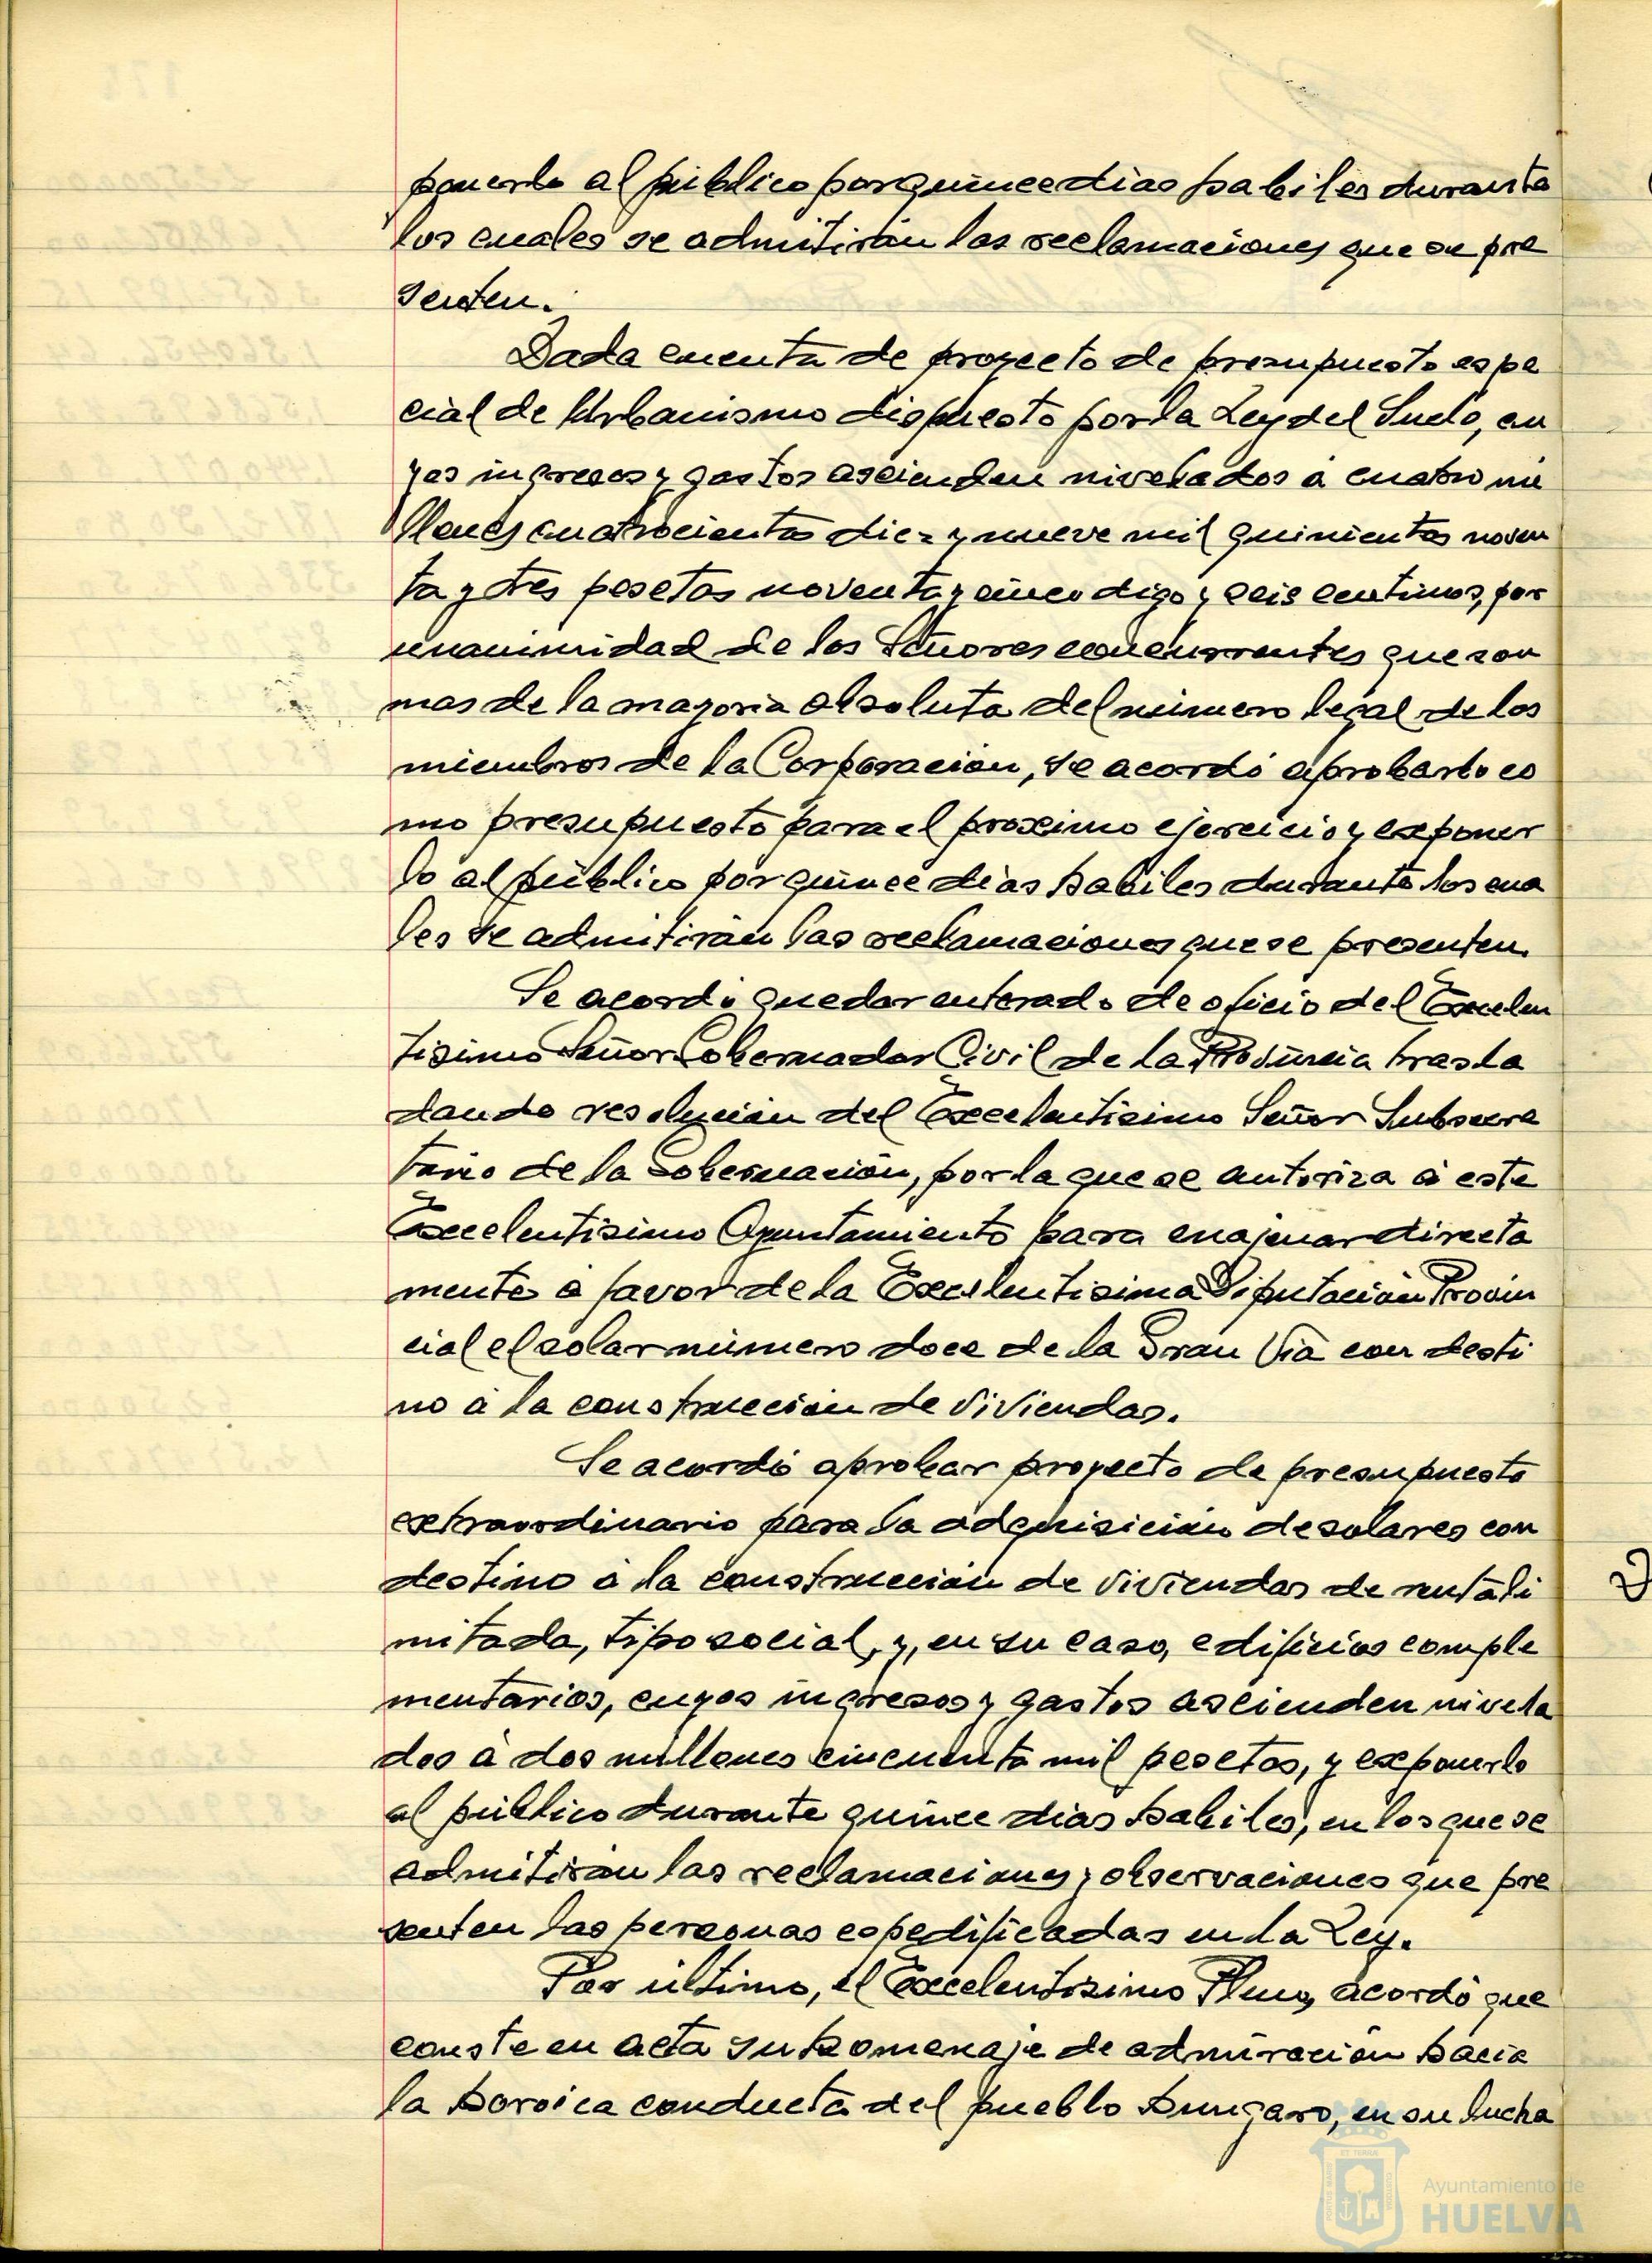 ponerlo al público por quince dias habiles durante
los cuales se admitirán las reclamaciones que se pre
senten.
Dada cuenta de proyecto de presupuesto espe
cial de Urbanismo dispuesto por la Ley del Suelo, cu
yos ingresos y gastos ascienden nivelados á cuatro mi
llones cuatrocientas diez y nueve mil quinientas noven
ta y tres pesetas noventa y cinco digo y seis centimos, por
unanimidad de los Señores concurrentes que son
mas de la mayoria absoluta del número legal de los
miembros de la Corporación, se acordó aprobarlo co
mo presupuesto para el proximo ejercicio y exponer
lo al público por quince dias habiles durante los cua
les se admitirán las reclamaciones que se presenten.
Se acordó quedar enterado de oficio del Excelen
tisimo Señor Gobernador Civil de la Provincia trasla
dando resolución del Excelentisimo Señor Subsecre
tario de la Gobernación, por la que se autoriza á este
Excelentisimo Ayuntamiento para enajenar directa
mente á favor de la Excelentisima Diputación Provin
cial el solar número doce de la Gran Via con desti
no á la construcción de viviendas.
Se acordó aprobar proyecto de presupuesto
extraordinario para la adquisición de solares con
destino á la construcción de viviendas de renta li
mitada, tipo social, y, en su caso, edificios comple
mentarios, cuyos ingresos y gastos ascienden nivela
dos á dos millones cincuenta mil pesetas, y exponerlo
al público durante quince dias habiles, en los que se
admitirán las reclamaciones y observaciones que pre
senten las personas espedificadas en la Ley.
Por último, el Excelentisimo Pleno, acordó que
conste en acta su homenaje de admiración hacia
la heroica conducta del pueblo hungaro, en su lucha
Ayuntamiento de
HUELVA